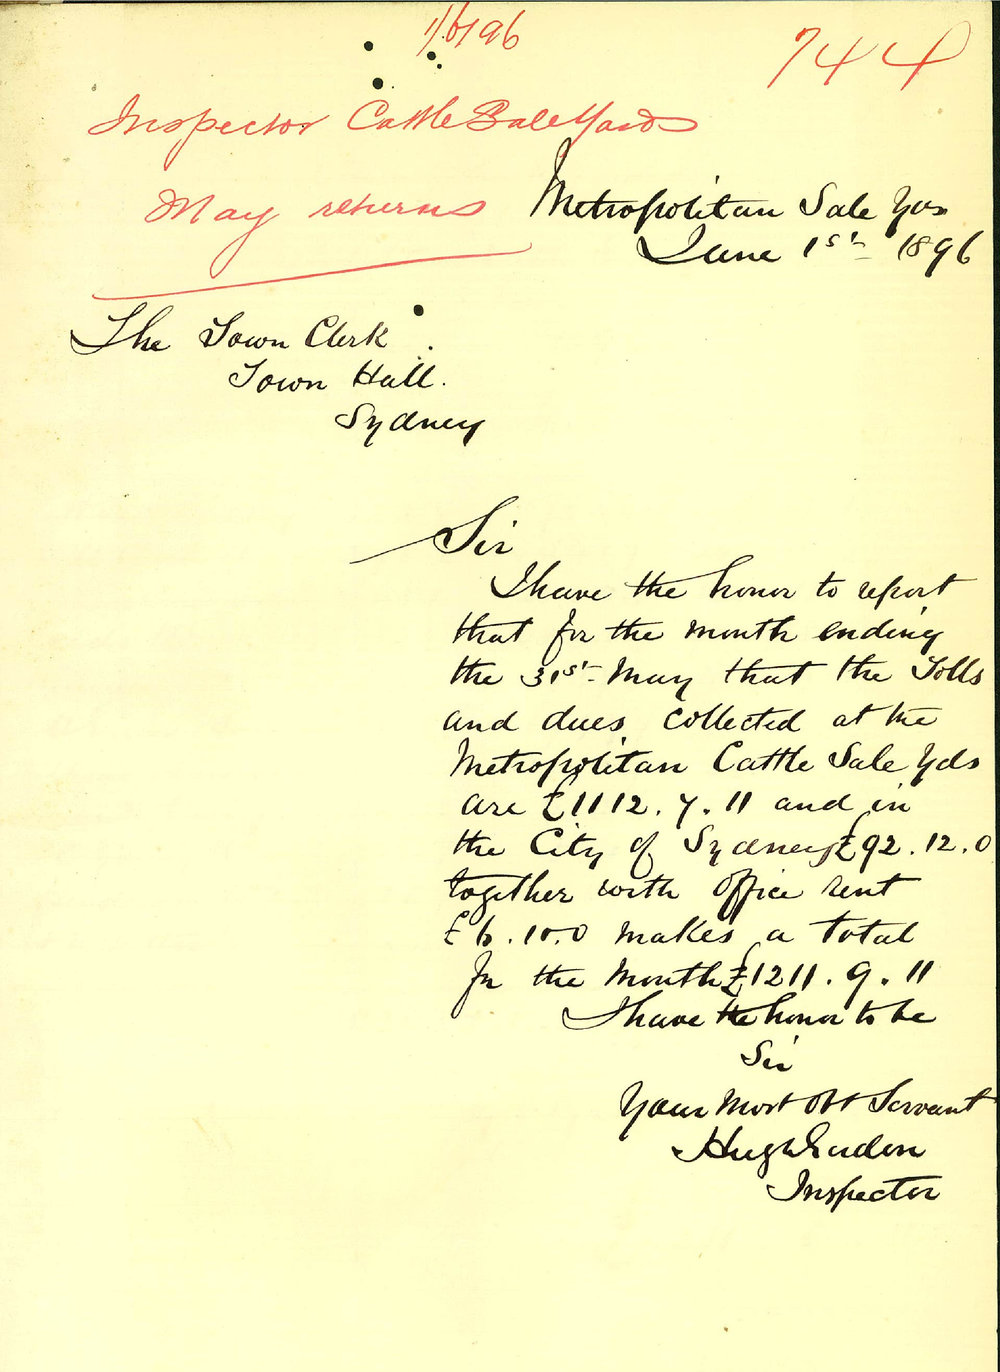 1/6/96
744
Inspector Cattle Sale Yards
May returns
Metropolitan Sale Yds
June 1st 1896
The Town Clerk
Town Hall.
Sydney
Sir
I have the honor to report
that for the month ending
the 31st May that the Tolls
and dues collected at the
Metropolitan Cattle Sale Yds
are £1112.7.11 and in
the City of Sydney £92.12.0
together with office rent
£6.10.0 makes a total
for the month £1211.9.11
I have the honor to be
Sir
Your Most Obt Servant
Hugh
Inspector